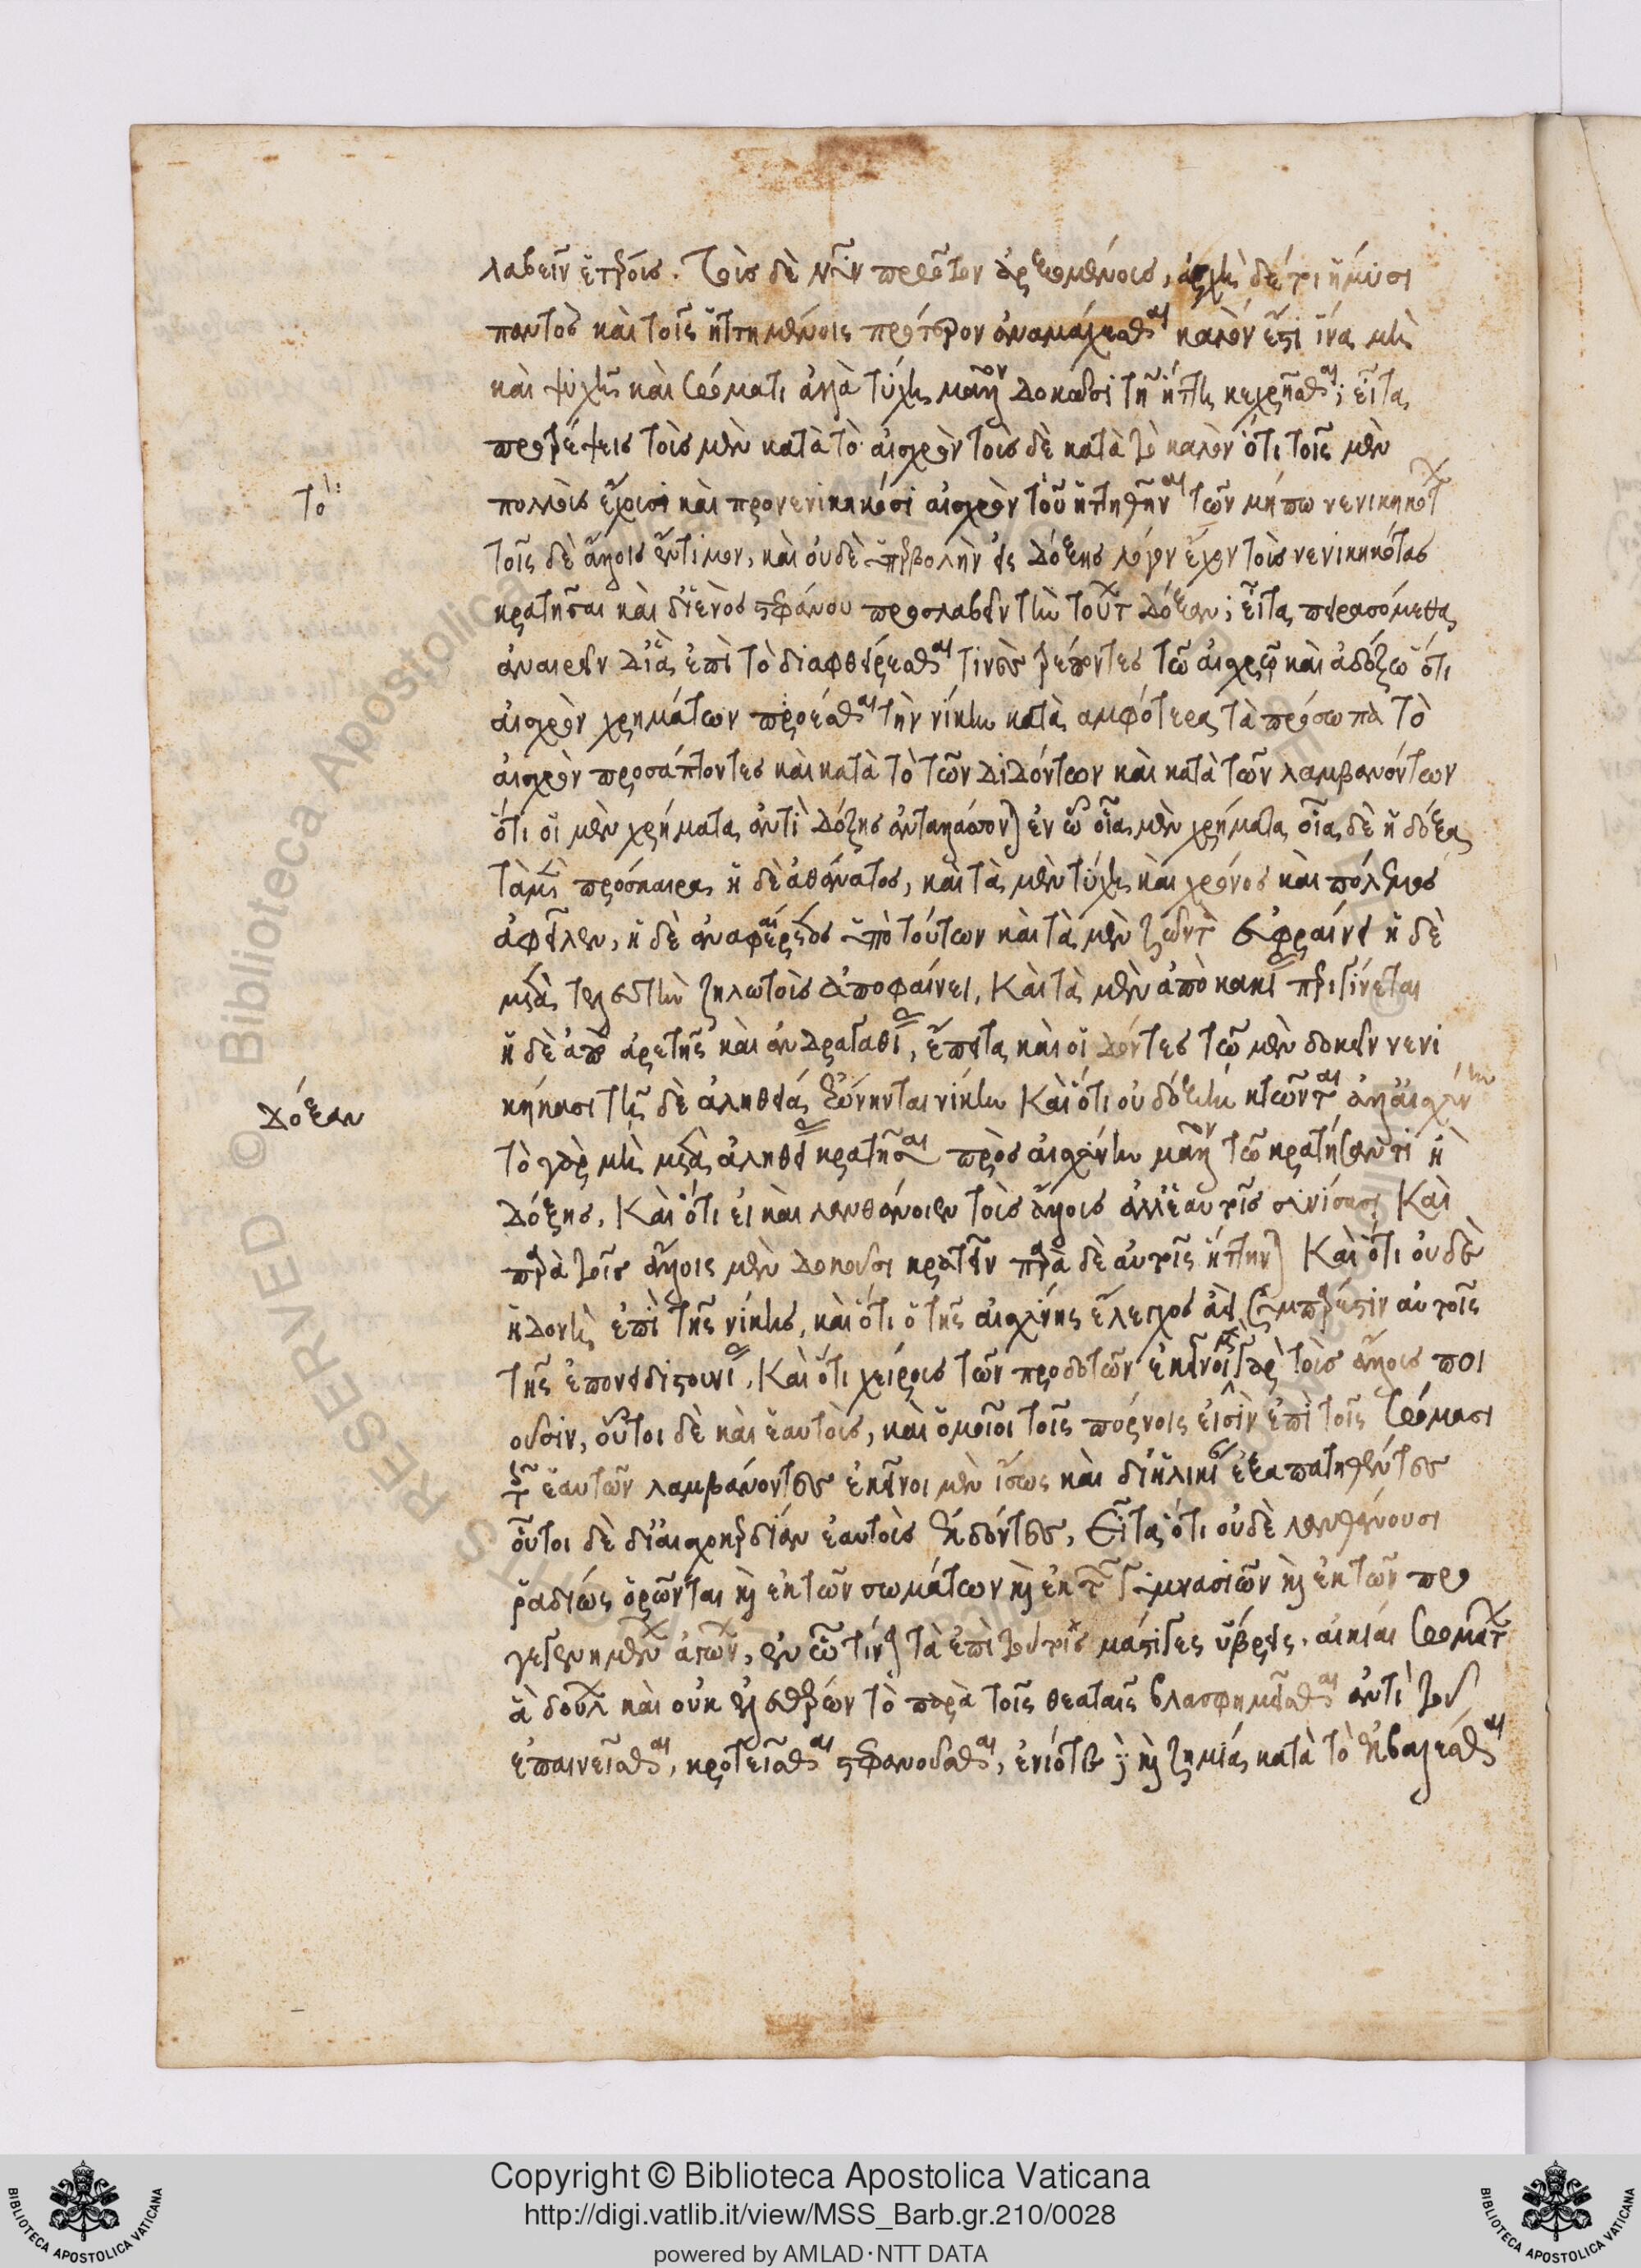 λαβεῖν ἑτέροις. τοῖς δὲ νῦν πρῶτον ἀρξαμένοις, ἀρχὴ δέ τι ἥμισι
παντὸς καὶ τοῖς ἡττημένοις πρότερον ἀναμάχεσθαι καλόν ἐστι ἵνα μὴ
καὶ ψυχῆ καὶ σώματι ἀλλὰ τύχη μᾶλλον δοκῶσι τῆ ἥττη κεχρῆσθαι; εἶτα
προτρέψεις τοὺς μὲν κατὰ τὸ αἰσχρὸν τοὺς δὲ κατὰ τὸ καλὸν ὅτι τοῖς μὲν
πολλοῖς ἔχουσι καὶ προνενικηκόσι αἰσχρὸν τοῦ ἡττηθῆναι τῶν μήπω νενικηκότων
τοῖς δὲ ἄλλοις ἔντιμον, καὶ οὐδὲ ὑπερβολὴν εἰς δόξης λόγον ἔχον τοὺς νενικηκότας
κρατῆσαι καὶ δι' ἑνὸς στεφάνου προσλαβεῖν τὴν τούτων δόξαν; εἶτα πειρασόμεθα
ἀναιρεῖν διὰ ἐπὶ τὸ διαφθείρεσθαι τινὲς ῥέποντες τῶ αἰσχρῶ καὶ ἀδόξω ὅτι
αἰσχρὸν χρημάτων προέσθαι τὴν νίκην κατὰ αμφότερα τὰ πρόσωπα τὸ
αἰσχρὸν προσάπτοντες καὶ κατὰ τὸ τῶν διδόντων καὶ κατὰ τῶν λαμβανόντων
ὅτι οἱ μὲν χρήματα ἀντὶ δόξης ἀνταλλάττονται ἐν ὧ οἷα μὲν χρήματα οἷα δὲ ἡ δόξα
τὰ μὲν πρόσκαιρα ἡ δὲ ἀθάνατος, καὶ τὰ μὲν τύχη καὶ χρόνος καὶ πόλεμος
ἀφεῖλεν, ἡ δὲ ἀναφαίρετος ὑπὸ τούτων καὶ τὰ μὲν ζῶντας εὐφραίνει ἡ δὲ
μετὰ τελευτὴν ζηλωτοὺς ἀποφαίνει, Καὶ τὰ μὲν ἀπὸ κακίας περιγίνεται
ἡ δὲ ἀπὸ ἀρετῆς καὶ ἀνδραγαθίας, ἔπειτα καὶ οἱ δόντες τῶ μὲν δοκεῖν νενι
κήκασι τῆ δὲ ἀληθεία ἐώνηνται νίκην Καὶ ὅτι οὐ δόξαν κτῶνται ἀλλ' αἰσχύνην
τὸ γὰρ μὴ μετὰ ἀληθείας κρατῆσαι πρὸς αἰσχύνην μᾶλλον τῶ κρατήσαντι ἢ
δόξης, Καὶ ὅτι εἰ καὶ λανθάνοιεν τοὺς ἄλλους ἀλλ' ἑαυτοῖς συνίσασι Καὶ
παρὰ τοῖς ἄλλοις μὲν δοκοῦσι κρατεῖν παρὰ δὲ αὐτοῖς ἥττηνται Καὶ ὅτι οὐδὲ
ἡδονὴ ἐπὶ τῆς νίκης, καὶ ὅτι ὁ τῆς αἰσχύνης ἔλεγχος ἀεὶ συμπάρεστιν αὐτοῖς
τῆς ἐπονειδίστου νίκης, Καὶ ὅτι χείρους τῶν προδοτῶν ἐκεῖνοι μὲν γὰρ τοὺς ἄλλους ποι
οῦσιν, οὗτοι δὲ καὶ ἑαυτοὺς, καὶ ὅμοιοι τοῖς πόρνοις εἰσὶν ἐπὶ τοῖς σώμασι
τοῖς ἑαυτῶν λαμβάνοντες ἐκεῖνοι μὲν ἴσως καὶ δι' ἡλικίαν ἐξαπατηθέντες
οὗτοι δὲ δι' αἰσχροκερδίαν ἑαυτοὺς ἐκδόντες, Εἶτα ὅτι οὐδὲ λανθάνουσι
ῥαδίως ὁρῶνται καὶ ἐκ τῶν σωμάτων καὶ ἐκ τῶν γυμνασιῶν καὶ ἐκ τῶν προ
γεγενημένων ἀγώνων, ἐν ὧ γίνονται τὰ ἐπὶ τούτοις μάστιγες ὕβρεις, αἰκίαι σωμάτων
ἃ δούλων καὶ οὐκ ἐλευθέρων τὸ παρὰ τοῖς θεαταῖς βλασφημεῖσθαι ἀντὶ τοῦ
ἐπαινεῖσθαι, κροτεῖσθαι στεφανοῦσθαι, ἐνίοτε καὶ ζημία κατὰ τὸ ἐκβαλέσθαι
τὸ:
δόξαν
RESERVED © Biblioteca Apostolica
Copyright © Biblioteca Apostolica Vaticana
http://digi.vatlib.it/view/MSS_Barb.gr.210/0028
powered by AMLAD·NTT DATA
BIBLIOTECA APOSTOLICA VATICANA
BIBLIOTECA APOSTOLICA VATICANA